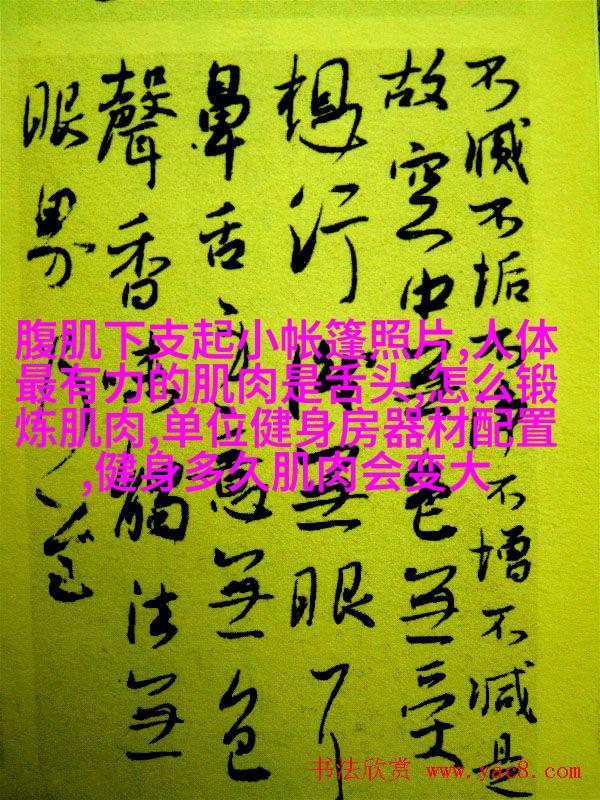 不滅不垢不淨不增不減是
故空中無色無受
想行識無眼耳
鼻舌身意無色
聲香味觸法無
眼界
腹肌下支起小帐篷照片,人体
最有力的肌肉是舌头,怎么锻
炼肌肉,单位健身房器材配置
,健身多久肌肉会变大
书法欣赏 www.yac8.com